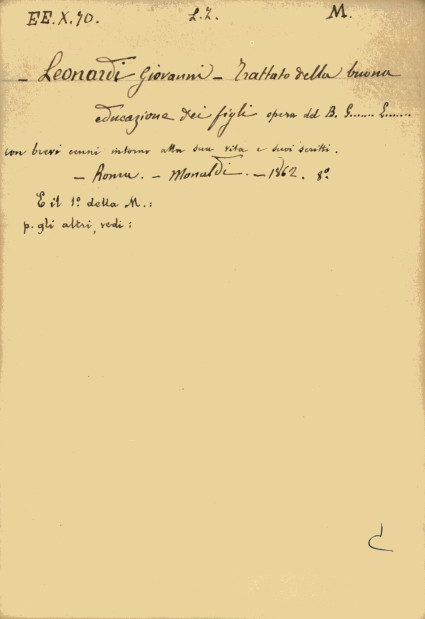 EE.X.70. L.Z. M.
- Leonardi Giovanni - Trattato della buona
educazione dei figli opera del B. G...... L......
con brevi cenni intorno alla sua vita e suoi scritti.
- Roma. - Monaldi. - 1862. 8°.
È il 1° della M.:
p. gli altri, vedi: